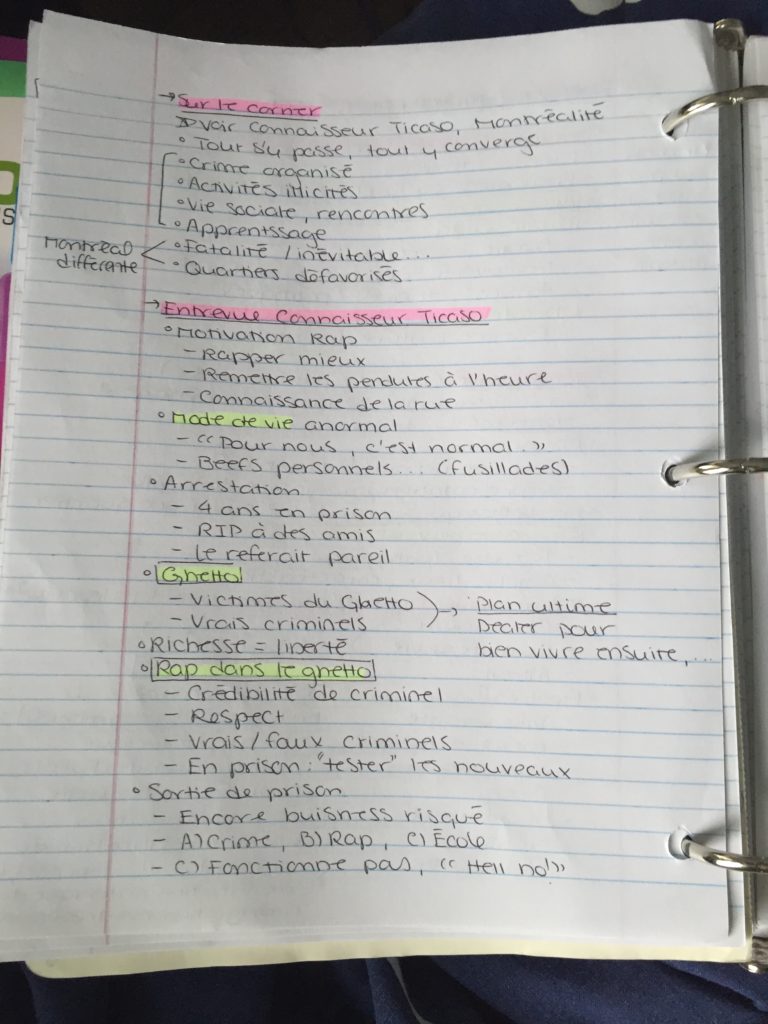 → Sur le corner
↳ Voir Connaisseur Ticaso, Montréalité
° Tout s'y passe, tout y converge
° Crime organisé
° Activités illicites
° Vie sociale, rencontres
° Apprentssage
Montréal différente < ° Fatalité / inévitable...
° Quartiers défavorisés
→ Entrevue Connaisseur Ticaso
° Motivation Rap
- Rapper mieux
- Remettre les pendules à l'heure
- Connaissance de la rue
° Mode de vie anormal
- « Pour nous, c'est normal. »
- Beefs personnels... (fusillades)
° Arrestation
- 4 ans en prison
- RIP à des amis
- Le referait pareil
° Ghetto
- Victimes du Ghetto } → Plan ultime
- Vrais criminels Dealer pour
° Richesse = liberté bien vivre ensuite,...
° Rap dans le ghetto
- Crédibilité de criminel
- Respect
- Vrais/faux criminels
- En prison: "tester" les nouveaux
° Sortie de prison
- Encore buisness risqué
- A) Crime, B) Rap, C) École
- C) Fonctionne pas, « Hell no! »